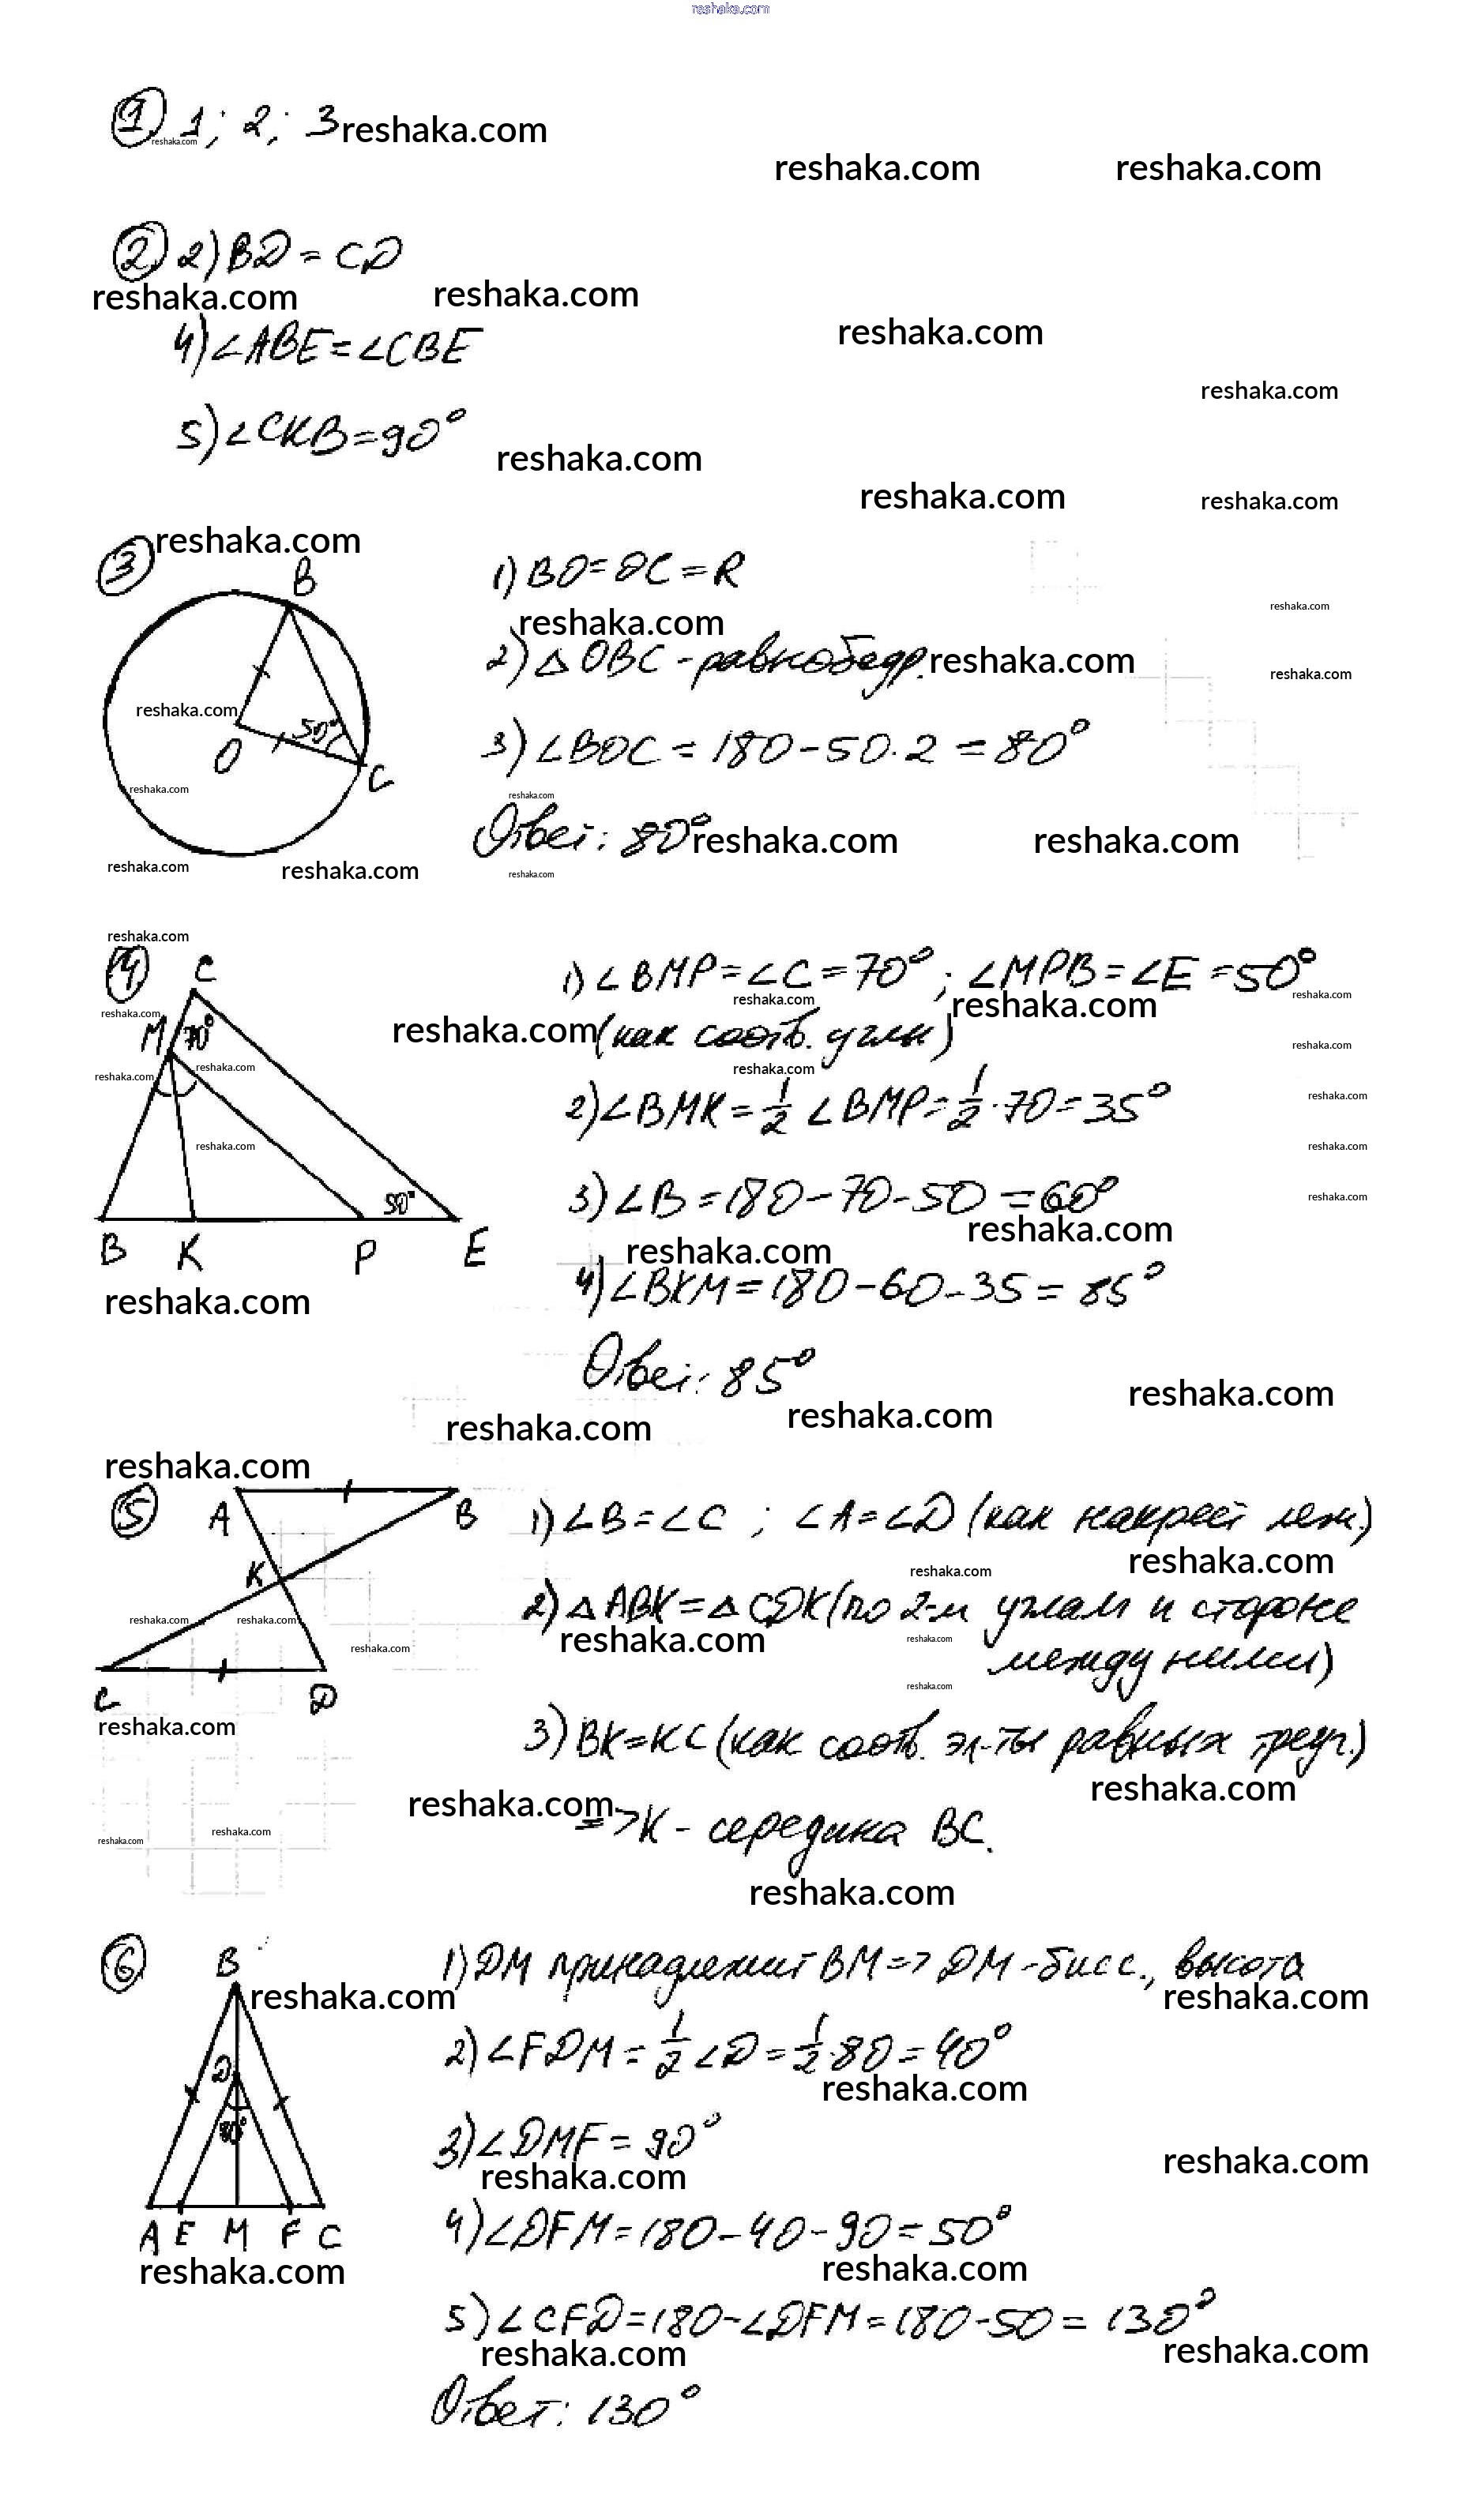 reshaka.com
① 1; 2; 3 reshaka.com
reshaka.com
reshaka.com reshaka.com
② 2) BD = CD
reshaka.com reshaka.com
reshaka.com
4) ∠ABE = ∠CBE
reshaka.com
5) ∠CKB = 90°
reshaka.com
reshaka.com reshaka.com
③ reshaka.com
B
1) BO = OC = R
reshaka.com
reshaka.com
2) △ OBC - равнобедр. reshaka.com
reshaka.com
reshaka.com
50°
O
C
3) ∠BOC = 180 - 50·2 = 80°
reshaka.com
reshaka.com
Ответ: 80° reshaka.com reshaka.com
reshaka.com reshaka.com
reshaka.com
reshaka.com
④ C
1) ∠BMP = ∠C = 70°; ∠MPB = ∠E = 50°
reshaka.com reshaka.com reshaka.com
reshaka.com
M 70°
reshaka.com (как соотв. углы)
reshaka.com
reshaka.com reshaka.com
reshaka.com
2) ∠BMK = 1/2 ∠BMP = 1/2 · 70 = 35°
reshaka.com
reshaka.com reshaka.com
3) ∠B = 180 - 70 - 50 = 60°
reshaka.com
50°
reshaka.com
B K P E
reshaka.com
4) ∠BKM = 180 - 60 - 35 = 85°
reshaka.com
Ответ: 85°
reshaka.com
reshaka.com
reshaka.com
reshaka.com
⑤ A B
1) ∠B = ∠C ; ∠A = ∠D (как накрест леж.)
reshaka.com
reshaka.com
K
2) △ ABK = △ CDK (по 2-м углам и стороне
reshaka.com reshaka.com
reshaka.com reshaka.com
reshaka.com
между ними)
reshaka.com
C D
reshaka.com
3) BK = KC (как соотв. эл-ты равных треуг.)
reshaka.com
reshaka.com
=> K - середина BC.
reshaka.com
reshaka.com
reshaka.com
⑥ B
1) DM принадлежит BM => DM - бисс., высота
reshaka.com reshaka.com
2) ∠FDM = 1/2 ∠D = 1/2 · 80 = 40°
reshaka.com
D
80°
3) ∠DMF = 90°
reshaka.com reshaka.com
A E M F C
4) ∠DFM = 180 - 40 - 90 = 50°
reshaka.com reshaka.com
5) ∠CFD = 180 - ∠DFM = 180 - 50 = 130°
reshaka.com reshaka.com
Ответ: 130°